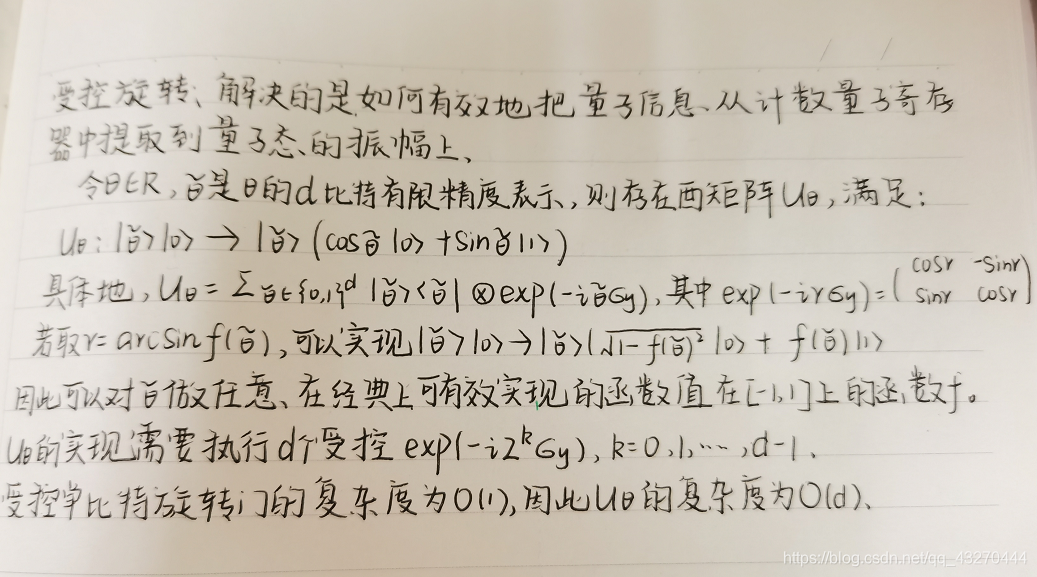 受控旋转、解决的是如何有效地把量子信息、从计数量子寄存
器中提取到量子态的振幅上、
令θ∈R,θ̃是θ的d比特有限精度表示,则存在酉矩阵Uθ,满足:
Uθ: |θ̃>|0> → |θ̃>(cosθ̃|0> + sinθ̃|1>)
具体地,Uθ = Σθ̃∈{0,1}^d |θ̃><θ̃| ⊗ exp(-iθ̃σy),其中 exp(-irσy) = (cosr -sinr / sinr cosr)
若取r=arcsinf(θ̃),可以实现|θ̃>|0>→|θ̃>(√(1-f(θ̃)²)|0> + f(θ̃)|1>
因此可以对θ̃做任意、在经典上可有效实现的函数值在[-1,1]上的函数f。
Uθ的实现需要执行d个受控 exp(-i2^kσy), k=0,1,…,d-1、
受控单比特旋转门的复杂度为O(1),因此Uθ的复杂度为O(d)、
https://blog.csdn.net/qq_43270444